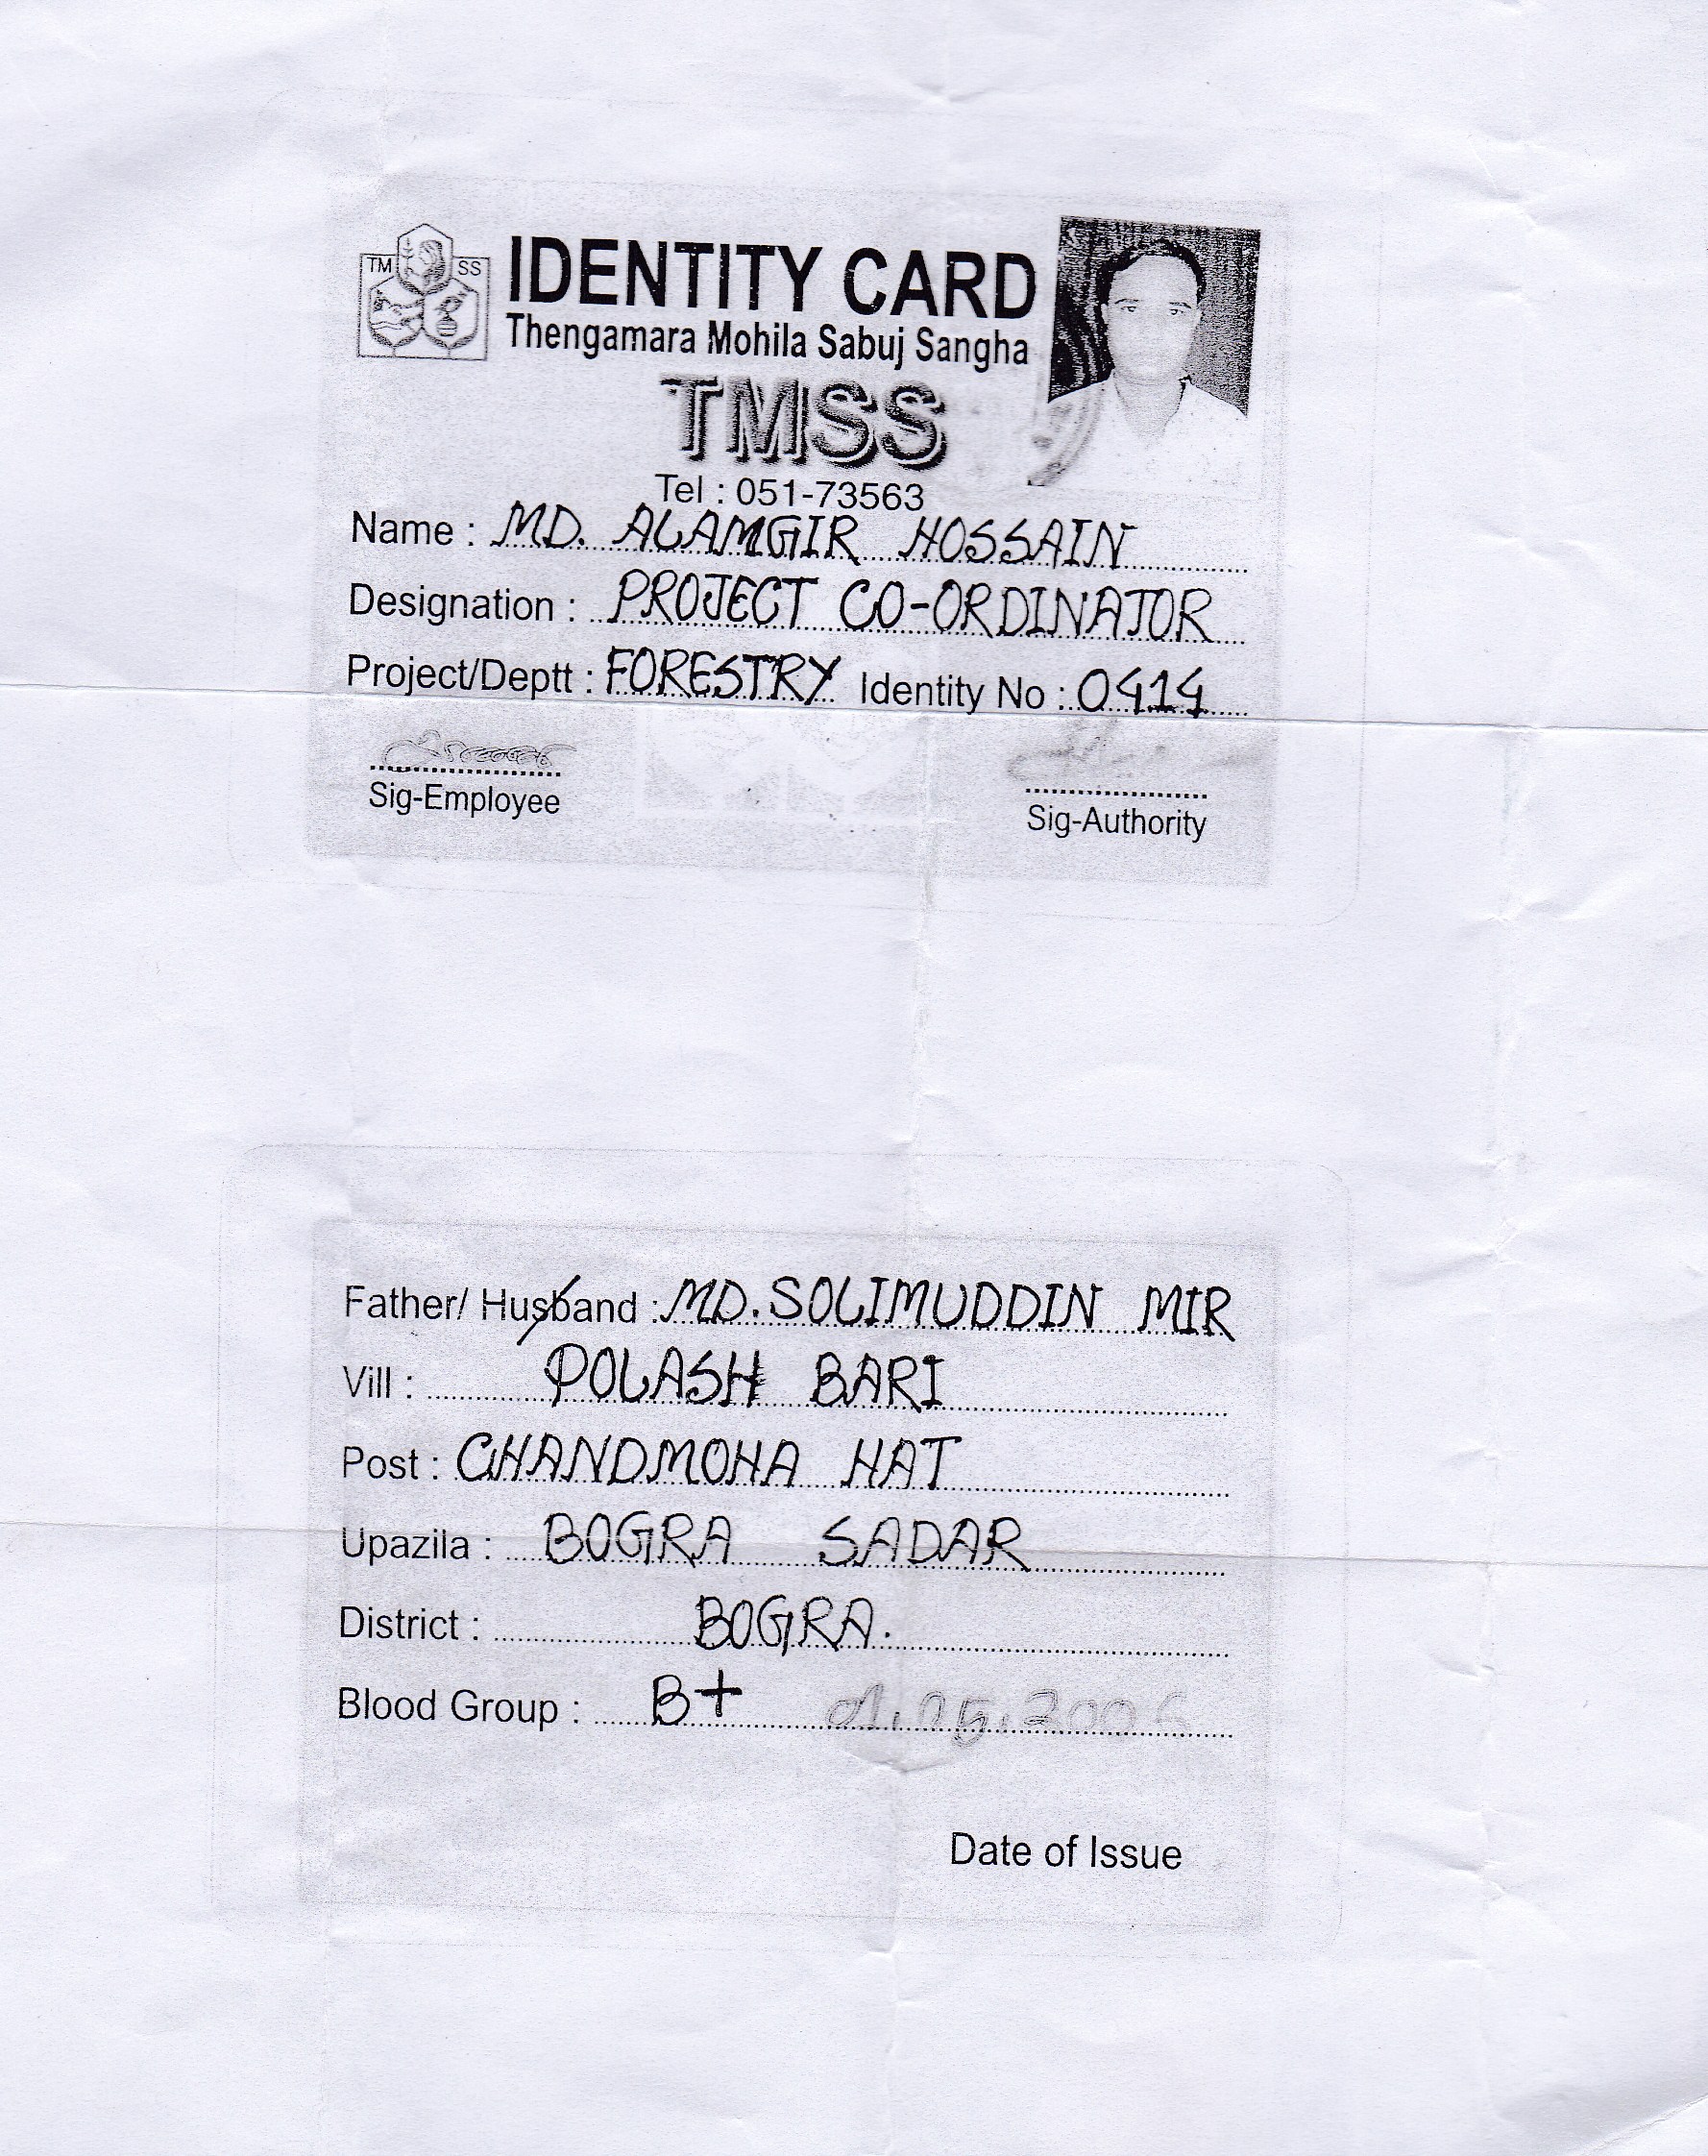 TM SS
IDENTITY CARD
Thengamara Mohila Sabuj Sangha
TMSS
Tel : 051-73563
Name : MD. ALAMGIR HOSSAIN
Designation : PROJECT CO-ORDINATOR
Project/Deptt : FORESTRY Identity No : 0414
Sig-Employee
Sig-Authority
Father/ Husband : MD. SOLIMUDDIN MIR
Vill : POLASH BARI
Post : CHANDMOHA HAT
Upazila : BOGRA SADAR
District : BOGRA.
Blood Group : B+
Date of Issue